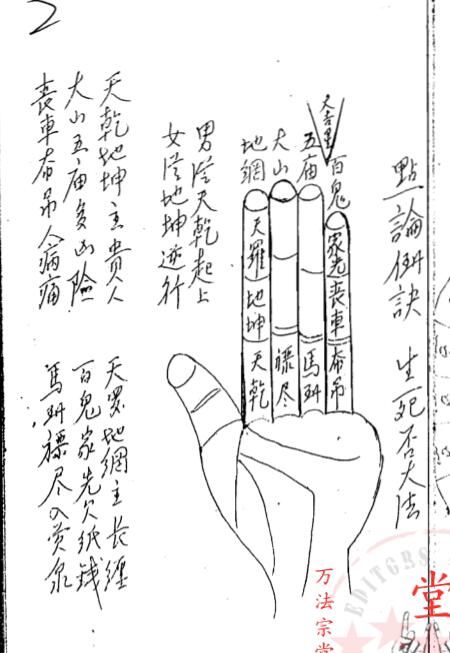 2
點論訣 生死否大法
百鬼
五庙
大山
地網
家先喪車吊
馬
尽
天羅地坤天乾
男從天乾起上
女從地坤逆行
天乾地坤主貴人
大山五庙多凶險
喪車吊人病痛
天罗地網主長纏
百鬼家先欠紙錢
馬尽入黄泉
万法宗堂
堂